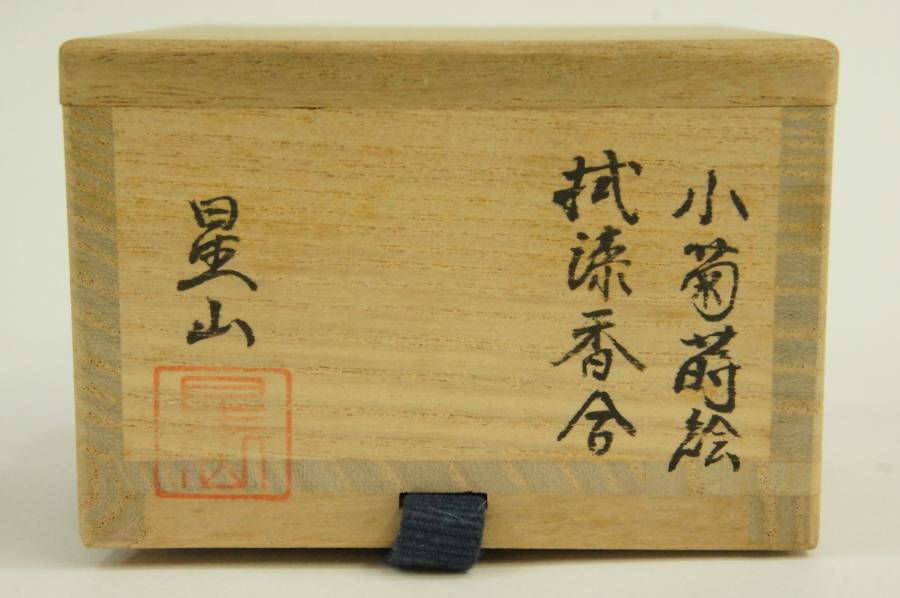 小菊蒔絵
拭漆香合
星山
星山